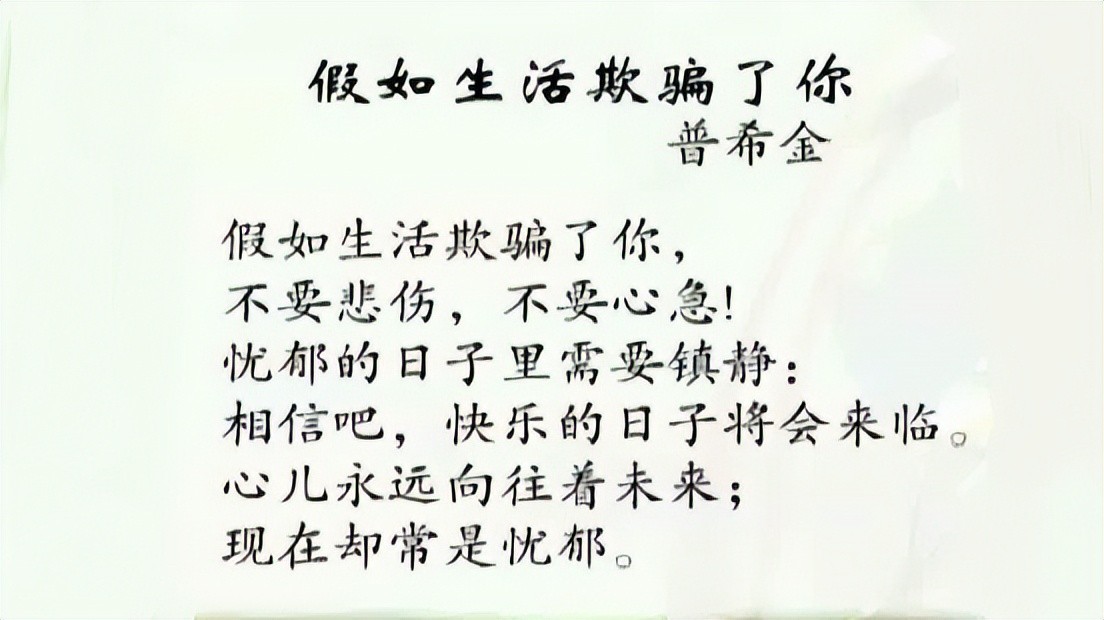 假如生活欺骗了你
普希金
假如生活欺骗了你，
不要悲伤，不要心急！
忧郁的日子里需要镇静：
相信吧，快乐的日子将会来临。
心儿永远向往着未来；
现在却常是忧郁。